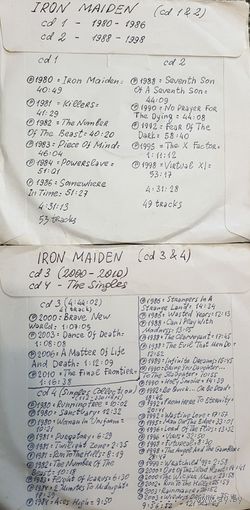 IRON MAIDEN (cd 1&2)
cd 1 - 1980-1986
cd 2 - 1988-1998
cd 1
Ⓟ1980=Iron Maiden=
40:49
Ⓟ1981=Killers=
41:29
Ⓟ1982=The Number
Of The Beast=40:20
Ⓟ1983=Piece Of Mind=
46:04
Ⓟ1984=Powerslave=
51:01
Ⓟ1986=Somewhere
In Time=51:27
4:31:13
53 tracks
cd 2
Ⓟ1988=Seventh Son
Of A Seventh Son=
44:09
Ⓟ1990=No Prayer For
The Dying=44:08
Ⓟ1992=Fear Of The
Dark=58:40
Ⓟ1995=The X Factor=
1:11:12
Ⓟ1998=Virtual XI=
53:17
4:31:28
49 tracks
IRON MAIDEN (cd 3&4)
cd 3 (2000-2010)
cd 4 - The Singles
cd 3 (4:44:02)
Ⓟ2000=Brave New
World=1:07:03
Ⓟ2003=Dance Of Death=
1:08:08
Ⓟ2006=A Matter Of Life
And Death=1:12:09
Ⓟ2010=The Final Frontier=
1:16:38
cd 4 (Singles Collection)
Ⓟ1980=Sanctuary=12:32
Ⓟ1980=Women In Uniform=
Ⓟ1981=Purgatory=6:29
Ⓟ1981=Twilight Zone=2:35
Ⓟ1982=Run To The Hills=8:19
Ⓟ1982=The Number Of
The Beast=10:18
Ⓟ1983=Flight Of Icarus=6:30
Ⓟ1984=2 Minutes To Midnight=
Ⓟ1984=Aces High=9:50
Ⓟ1986=Stranger In A
Strange Land=14:24
Ⓟ1986=Wasted Years=12:13
Ⓟ1988=Can I Play With
Madness=
Ⓟ1988=The Clairvoyant=17:45
Ⓟ1988=The Evil That Men Do=
Ⓟ1989=Infinite Dreams=15:45
Ⓟ1990=Bring Your Daughter...
To The Slaughter=
Ⓟ1990=Holy Smoke=14:39
Ⓟ1992=Be Quick Or Be Dead=
Ⓟ1992=From Here To Eternity=
Ⓟ1992=Wasting Love=17:57
Ⓟ1995=Man On The Edge=
Ⓟ1996=Lord Of The Flies=
Ⓟ1996=Virus=
Ⓟ1998=Futureal=
Ⓟ1998=The Angel And The Gambler=
Ⓟ2000=The Wicker Man=